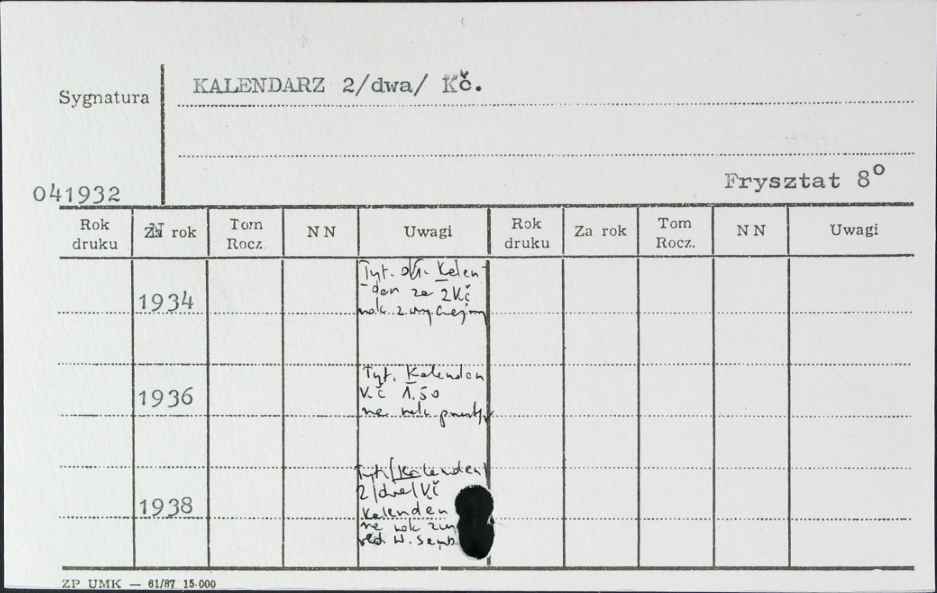 KALENDARZ 2/dwa/ Kč.
Sygnatura
Frysztat 8°
041932
Rok druku
Za rok
Tom Rocz.
N N
Uwagi
Rok druku
Za rok
Tom Rocz.
N N
Uwagi
1934
Tyt. okł. Kalen-
-darz za 2 Kč
rok zwyczajny
1936
Tyt. Kalendarz
Kč 1.50
na rok
1938
Tyt. Kalendarz
2/dwa/ Kč
Kalendarz
na rok
red. W.
ZP UMK — 61/87 15-000